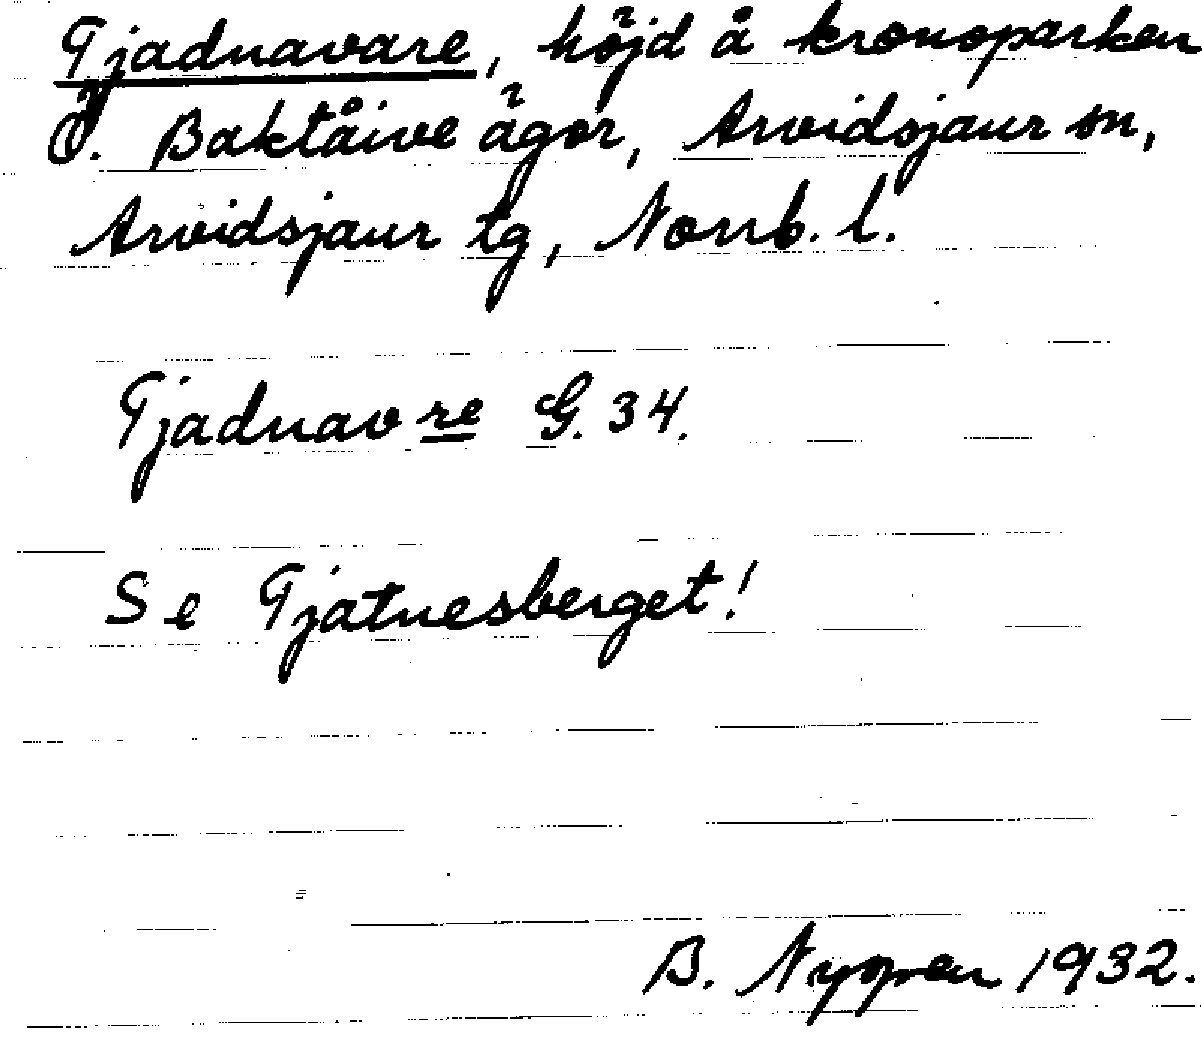 Tjadnavare, höjd å kronoparken
Ö. Baktåive ägor, Arvidsjaur sn,
Arvidsjaur tg, Norrb. l.
Tjadnavre G. 34.
Se Tjatnesberget!
B. Nyman 1932.